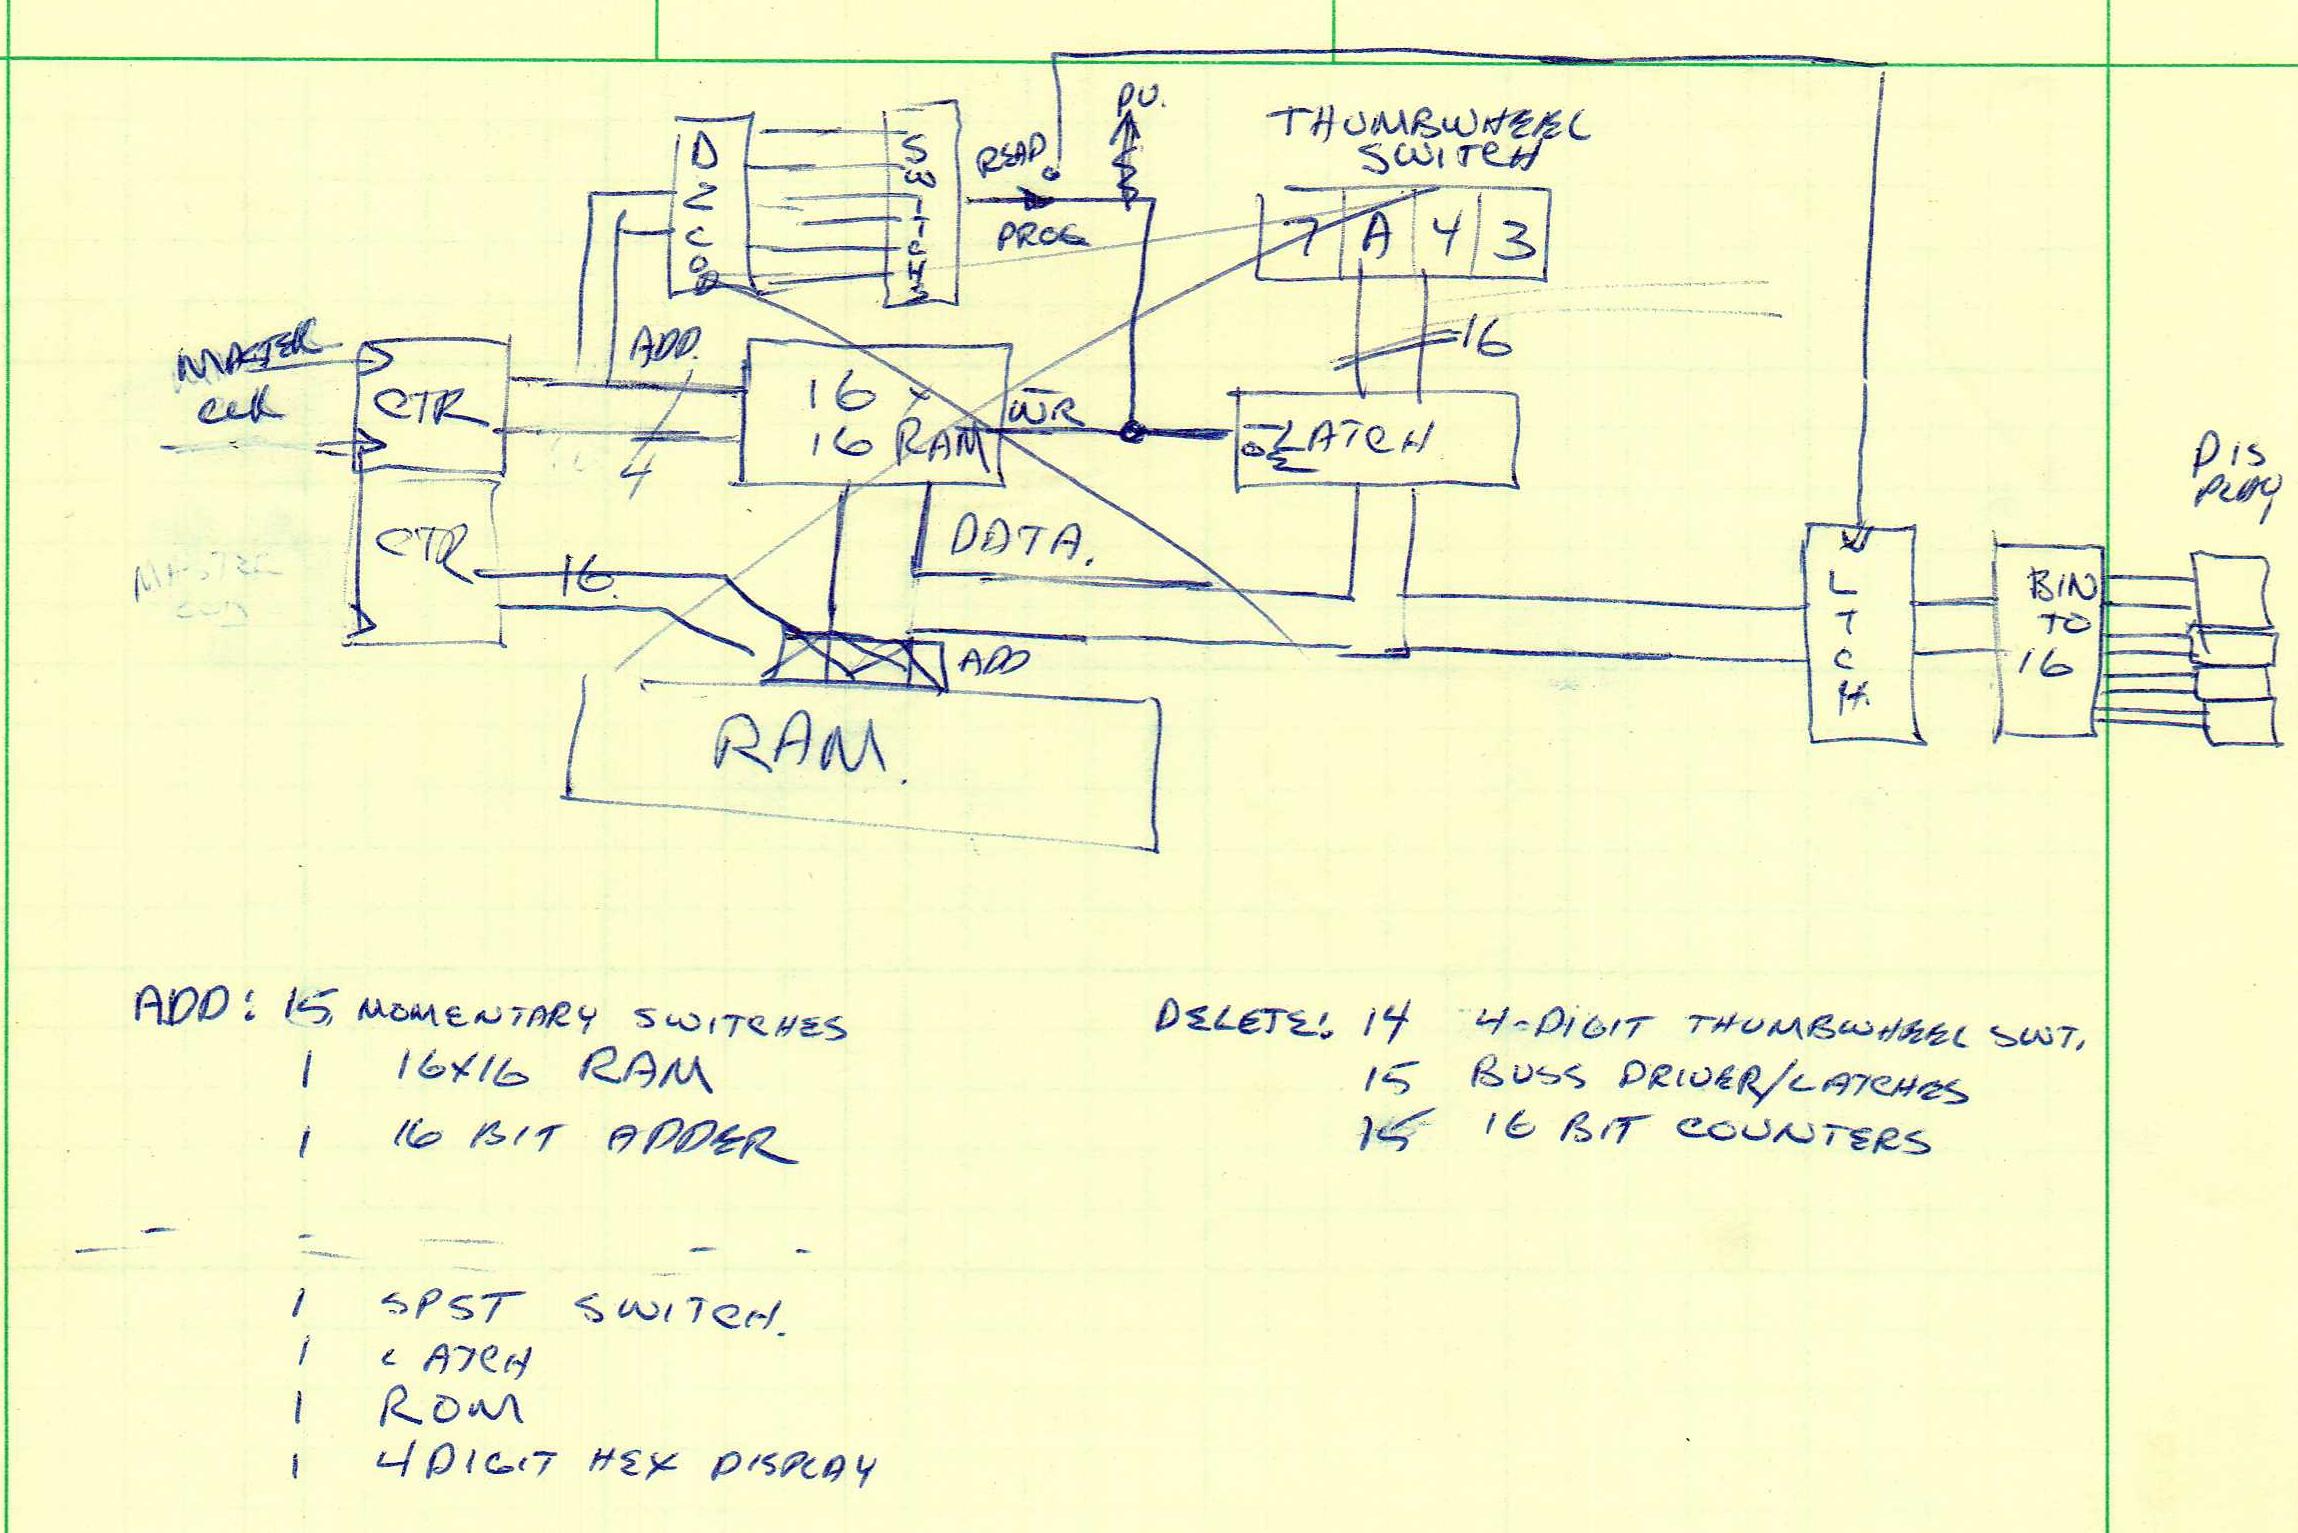 P.U.
THUMBWHEEL
SWITCH
DECOD
SWITCHES
READ
PROG
7 A 4 3
MASTER
CLK
CTR
ADD.
4
16 x
16 RAM
WR
16
OE
LATCH
CTR
16
DATA.
MASTER
CLK
ADD
RAM.
LTCH
BIN
TO
16
DIS
PLAY
ADD: 15 MOMENTARY SWITCHES
1 16X16 RAM
1 16 BIT ADDER
1 SPST SWITCH.
1 LATCH
1 ROM
1 4 DIGIT HEX DISPLAY
DELETE: 14 4-DIGIT THUMBWHEEL SWT.
15 BUSS DRIVER/LATCHES
15 16 BIT COUNTERS